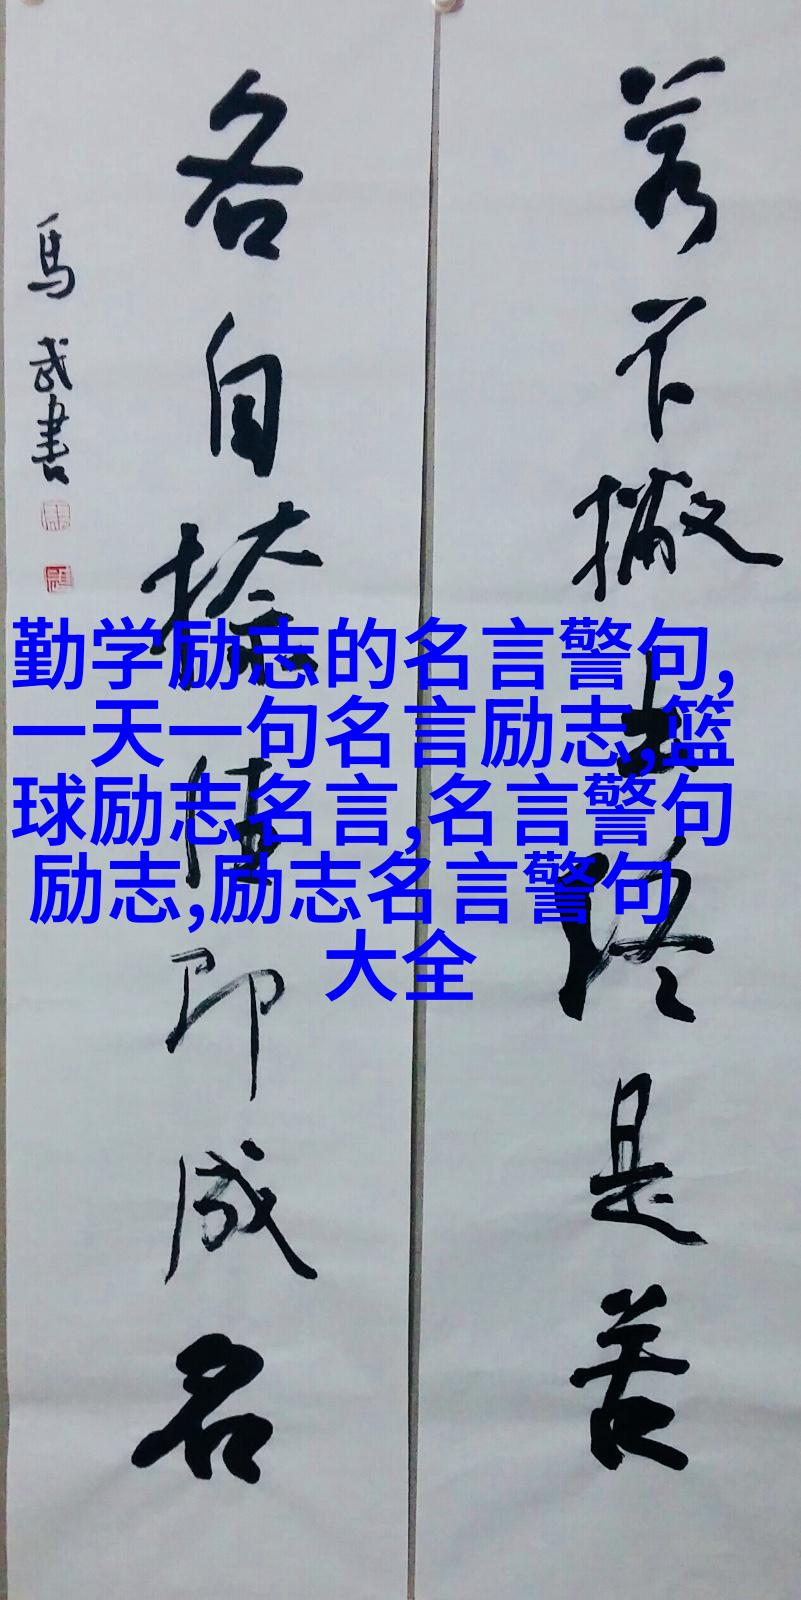 若不撇出终是苦
各自捺住即成名
馬武書
勤学励志的名言警句,
一天一句名言励志,篮
球励志名言,名言警句
励志,励志名言警句
大全